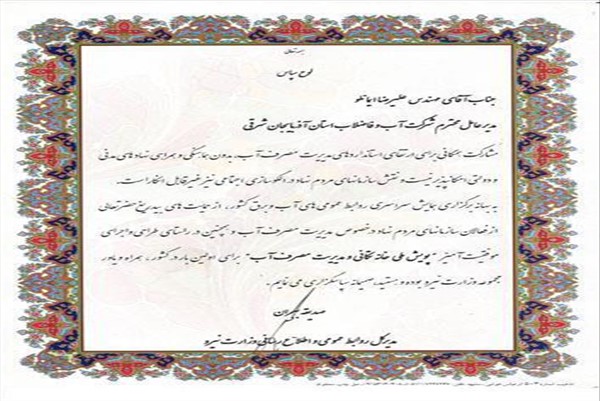 بسمه تعالی
لوح سپاس
جناب آقای مهندس علیرضا ایمانلو
مدیرعامل محترم شرکت آب و فاضلاب استان آذربایجان شرقی
مشارکت همگانی برای ارتقای استانداردهای مدیریت مصرف آب، بدون هماهنگی و همراهی نهادهای مدنی
و دولتی امکانپذیر نیست و نقش سازمانهای مردم نهاد در الگوسازی اجتماعی نیز غیرقابل انکار است.
به بهانه برگزاری همایش سراسری روابط عمومی های آب و برق کشور، از حمایت های بیدریغ حضرتعالی
از فعالان سازمانهای مردم نهاد در خصوص مدیریت مصرف آب و همچنین در راستای طراحی و اجرای
موفقیت آمیز "پویش ملی خانه تکانی و مدیریت مصرف آب" برای اولین بار در کشور، همراه و یاور
مجموعه وزارت نیرو بوده و هستید، صمیمانه سپاسگزاری می نمایم.
صدیقه ببران
مدیرکل روابط عمومی و اطلاع رسانی وزارت نیرو